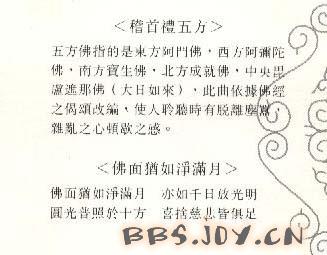 ＜稽首禮五方＞
五方佛指的是東方阿閦佛，西方阿彌陀
佛，南方寶生佛，北方成就佛，中央毘
盧遮那佛（大日如來），此曲依據佛經
之偈頌改編，使人聆聽時有脫離塵囂
雜亂之心頓歇之感。
＜佛面猶如淨滿月＞
佛面猶如淨滿月　亦如千日放光明
圓光普照於十方　喜捨慈悲皆俱足
BBS.JOY.CN